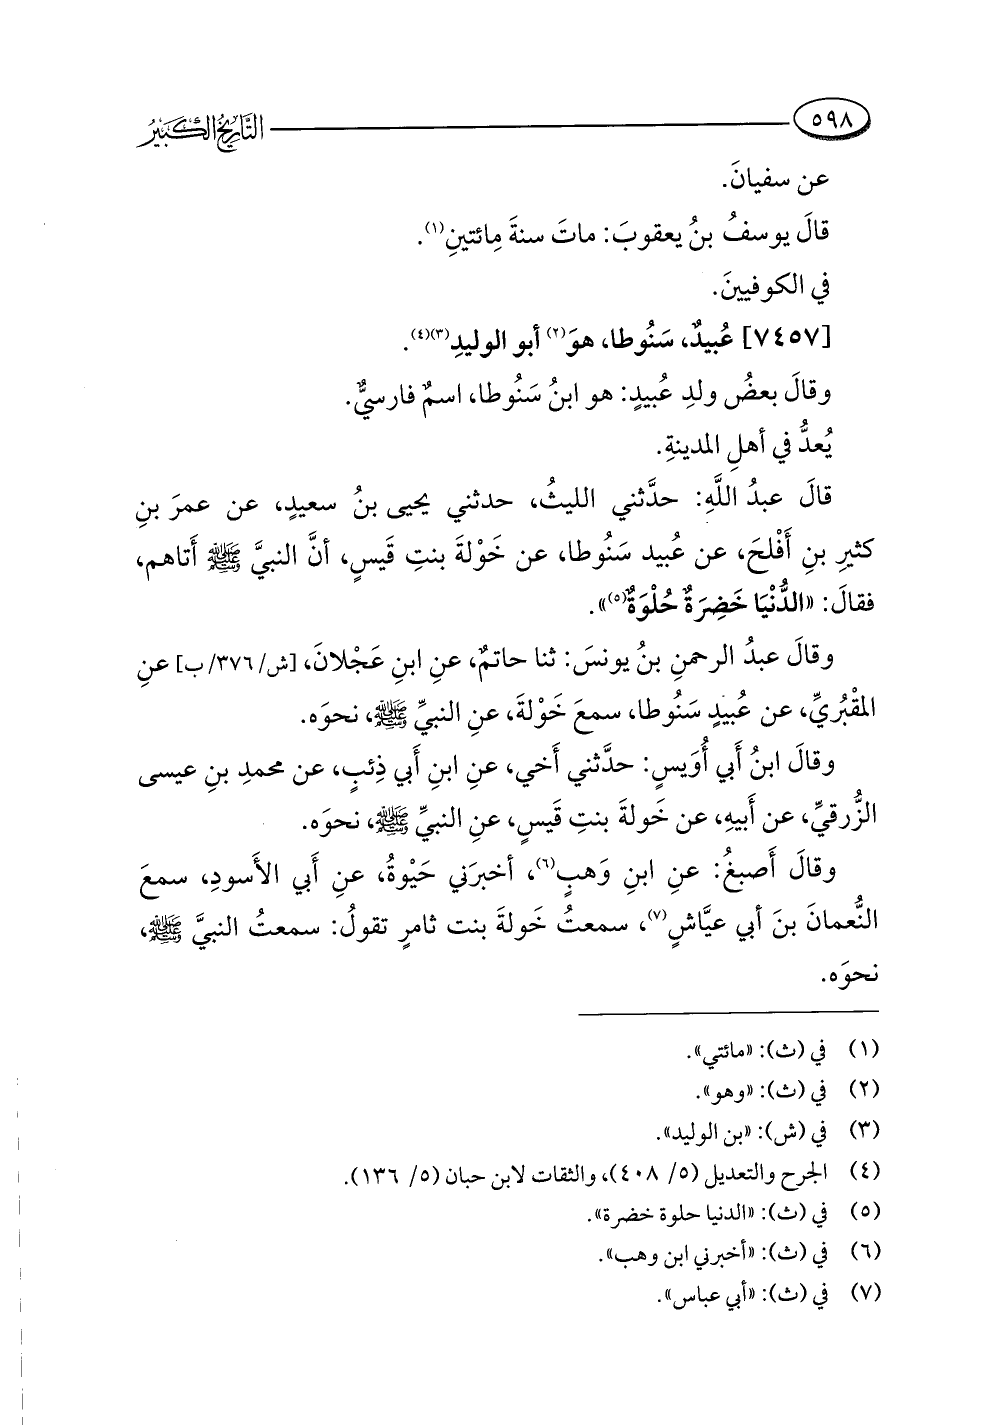 ٥٩٨ التَّارِيخُ الكَبِيرُ
عن سفيانَ.
قالَ يوسفُ بنُ يعقوبَ: ماتَ سنةَ مِائتينِ(١).
في الكوفيينَ.
[٧٤٥٧] عُبيدٌ، سَنُوطا، هوَ(٢) أبو الوليدِ(٣)(٤).
وقالَ بعضُ ولدِ عُبيدٍ: هو ابنُ سَنُوطا، اسمٌ فارسيٌّ.
يُعدُّ في أهلِ المدينةِ.
قالَ عبدُ اللَّهِ: حدَّثني الليثُ، حدثني يحيى بنُ سعيدٍ، عن عمرَ بنِ
كثيرِ بنِ أَفْلحَ، عن عُبيد سَنُوطا، عن خَوْلةَ بنتِ قَيسٍ، أنَّ النبيَّ ﷺ أَتاهم،
فقالَ: «الدُّنْيَا خَضِرَةٌ حُلْوَةٌ(٥)».
وقالَ عبدُ الرحمنِ بنُ يونسَ: ثنا حاتمٌ، عنِ ابنِ عَجْلانَ، [ش/ ٣٧٦/ ب] عنِ
المَقْبُريِّ، عن عُبيدٍ سَنُوطا، سمعَ خَوْلةَ، عنِ النبيِّ ﷺ، نحوَه.
وقالَ ابنُ أَبي أُوَيسٍ: حدَّثني أَخي، عنِ ابنِ أَبي ذِئبٍ، عن محمدِ بنِ عيسى
الزُّرقيِّ، عن أَبيهِ، عن خَولةَ بنتِ قَيسٍ، عنِ النبيِّ ﷺ، نحوَه.
وقالَ أَصبغُ: عنِ ابنِ وَهبٍ(٦)، أخبرَني حَيْوةُ، عنِ أَبي الأَسودِ، سمعَ
النُّعمانَ بنَ أبي عيَّاشٍ(٧)، سمعتُ خَولةَ بنت ثامرٍ تقولُ: سمعتُ النبيَّ ﷺ،
نحوَه.
(١) في (ث): «مائتي».
(٢) في (ث): «وهو».
(٣) في (ش): «بن الوليد».
(٤) الجرح والتعديل (٥/ ٤٠٨)، والثقات لابن حبان (٥/ ١٣٦).
(٥) في (ث): «الدنيا حلوة خضرة».
(٦) في (ث): «أخبرني ابن وهب».
(٧) في (ث): «أبي عباس».